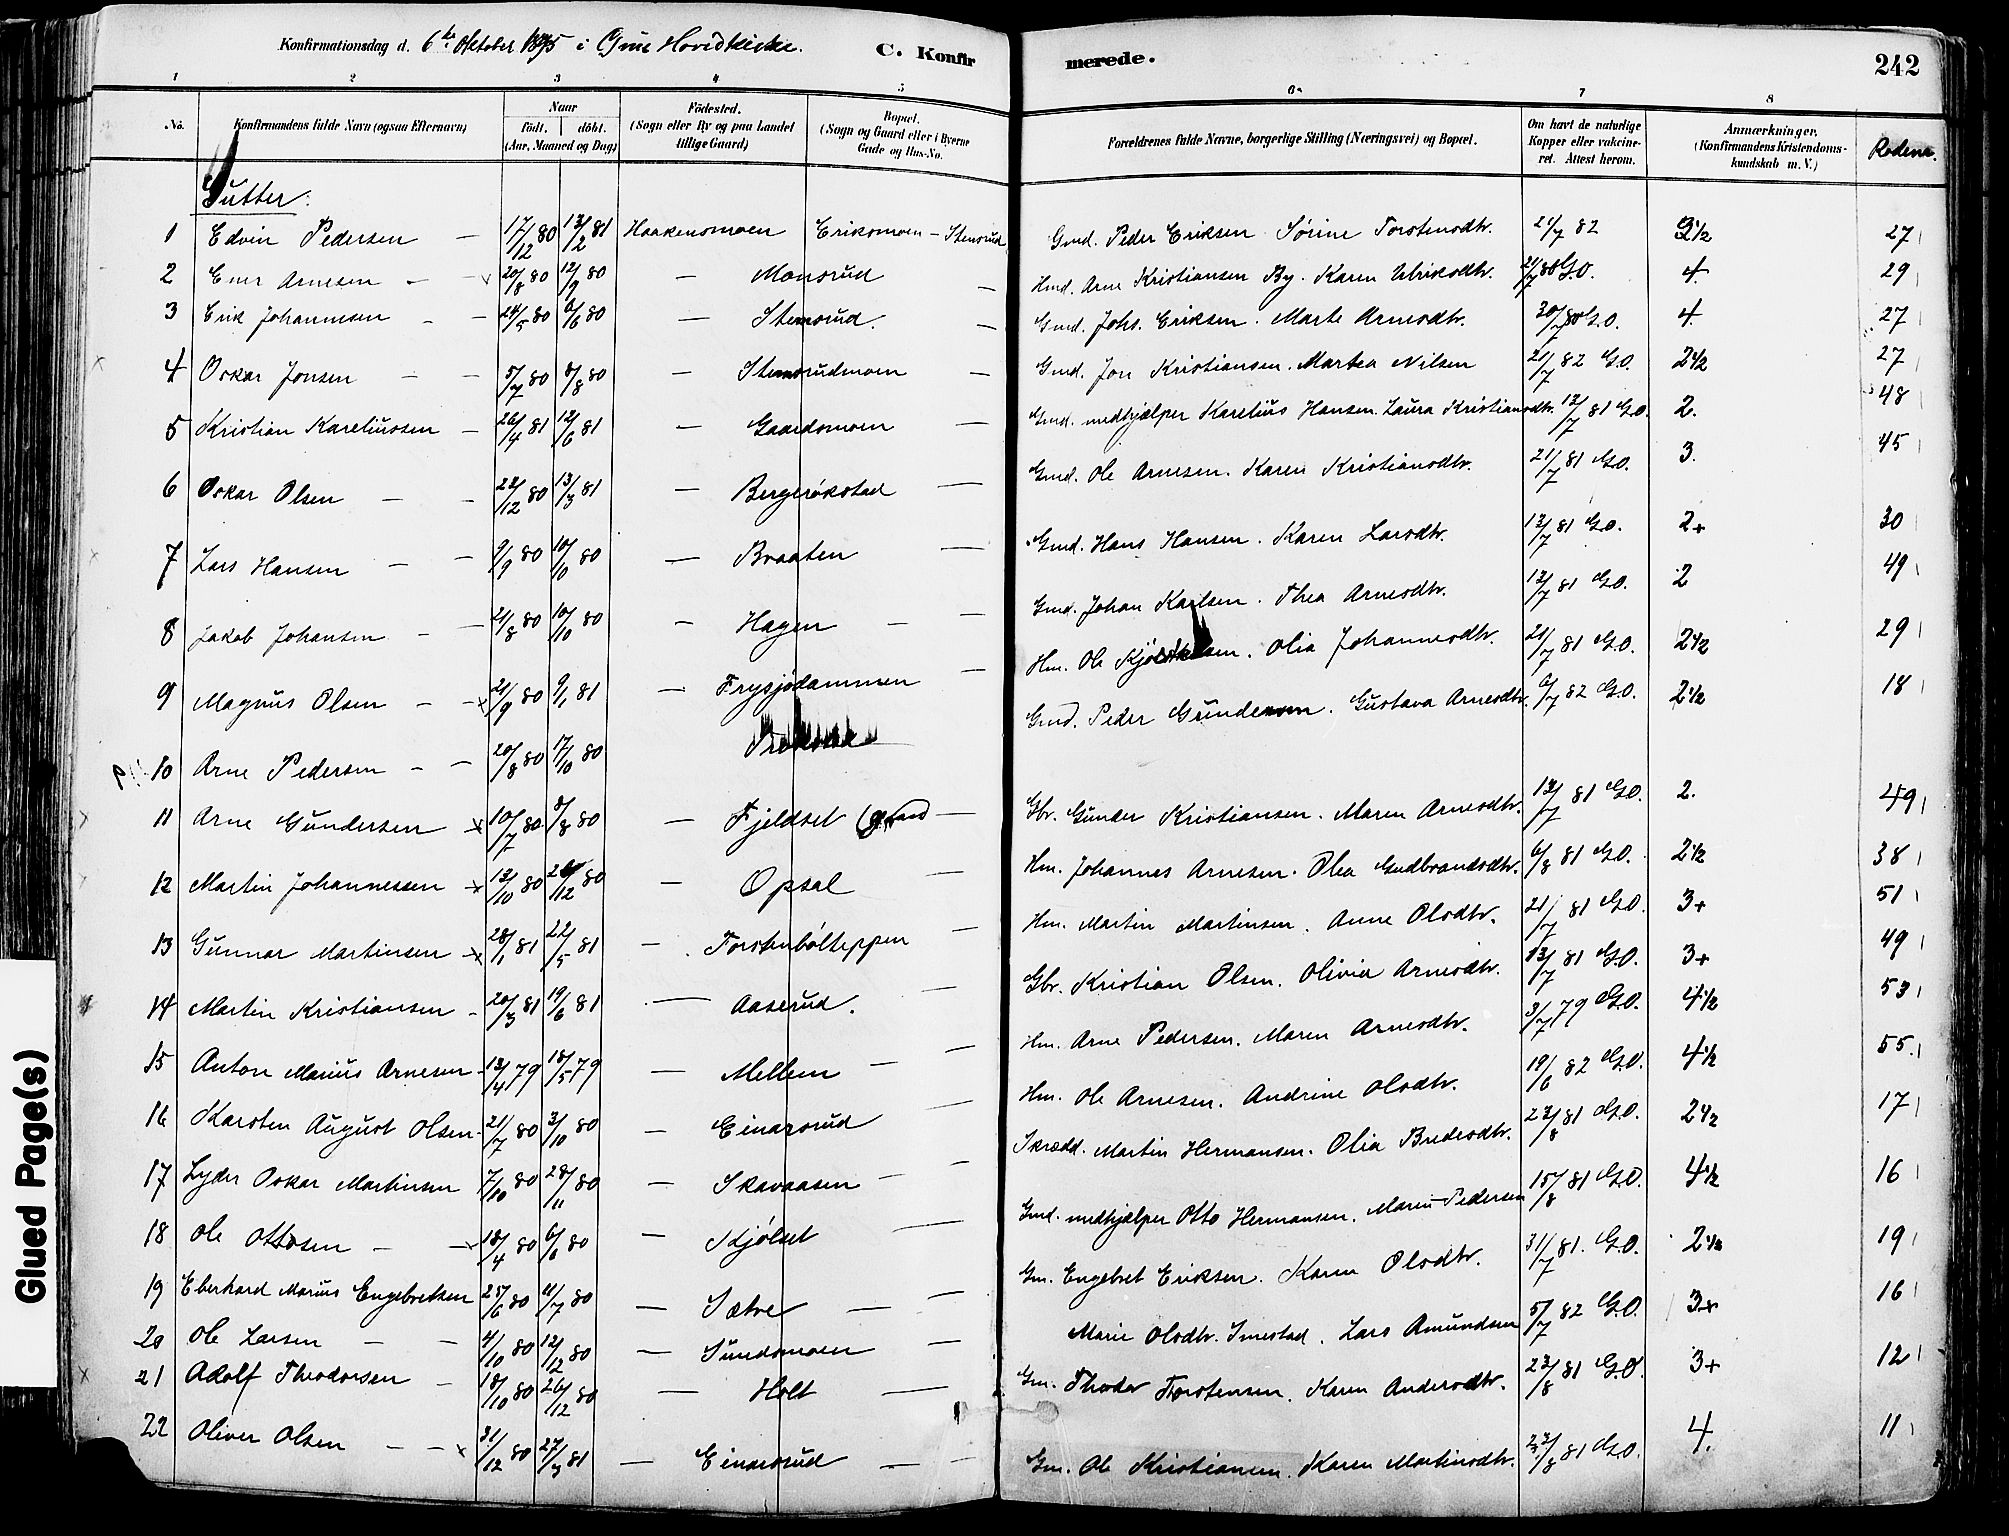 Konfirmationsdag d. 6te Oktober 1895 i Grue Hovedkirke. C. Konfir
merede. 242
1 2 3 4 5 6. 7 8
No. Konfirmandens fulde Navn (ogsaa Efternavn) Naar födt. döbt. (Aar, Maaned og Dag) Födested. (Sogn eller By og paa Landet tillige Gaard) Bopæl. (Sogn og Gaard eller i Byerne Gade og Hus-No. Forældrenes fulde Navne, borgerlige Stilling (Næringsvei) og Bopæl. Om havt de naturlige Kopper eller vakcineret. Attest herom. Anmærkninger. (Konfirmandens Kristendomskundskab m. V.) Rodenr.
Gutter:
1 Edvin Pedersen — 17/12 80 13/2 81 Haakensmoen Eriksmoen – Stensrud Gmd. Peder Eriksen Sørine Torstensdtr. 21/7 82 3½ 27
2 Einer Arnesen – 20/8 80 12/9 80 — Monsrud — Hmd. Arne Kristiansen By. Karen Ulriksdtr. 21/7 80 G.O. 4. 29
3 Erik Johannesen – – 24/5 80 6/6 80 — Stensrud. — Gmd. Johs. Eriksen. Marte Arnesdtr. 30/7 80 G.O. 4. 27
4 Oskar Jonsen – – 5/7 80 8/8 80 — Stensrudmoen — Gmd. Jon Kristiansen. Martea Nilsen 21/7 82 G.O. 2½ 27
5 Kristian Kareliussen – 26/4 81 12/6 81 — Gaardsmoen — Gmd. medhjælper Karelius Hansen. Laura Kristiansdtr. 12/7 81 G.O. 2. 48
6 Oskar Olsen – – 22/12 80 13/3 81 — Bergerøkstad — Gmd. Ole Arnesen. Karen Kristiansdtr. 21/7 81 G.O. 3. 45
7 Lars Hansen – – 9/9 80 10/10 80 — Braaten — Gmd. Hans Hansen. Karen Larsdtr. 12/7 81 G.O. 2+ 30
8 Jakob Johansen – – 21/8 80 10/10 80 — Hagen — Gmd. Johan Karlsen. Thea Arnesdtr. 12/7 81 G.O. 2 49
9 Magnus Olsen – – 21/9 80 9/1 81 — Frysjødammen — Hm. Ole . Olia Johannesdtr. 21/7 81 G.O. 2½ 29
10 Arne Pedersen – – 20/8 80 17/10 80 Gmd. Peder Gundersen. Gustava Arnesdtr. 6/7 82 G.O. 2½ 18
11 Arne Gundersen 10/7 80 8/8 80 — Fjeldset — Gbr. Gunder Kristiansen. Maren Arnesdtr. 12/7 81 G.O. 2. 49
12 Martin Johannessen 12/10 80 26/12 80 — Opsal — Hm. Johannes Arnesen. Olea Gudbrandsdtr. 6/8 81 G.O. 2½ 38
13 Gunnar Martinsen 28/1 81 22/5 81 — Torstenbölteppen — Hm. Martin Martinsen. Anne Olsdtr. 21/7 81 G.O. 3+ 51
14 Martin Kristiansen – 20/3 81 19/6 81 — Aaserud. — Gbr. Kristian Olsen. Olivia Arnesdtr. 13/7 81 G.O. 3+ 49
15 Anton Marius Arnesen 12/4 79 18/5 79 — Mellem — Hm. Arne Pedersen. Maren Arnesdtr. 3/7 79 G.O. 4½ 53
16 Karsten August Olsen 21/7 80 3/10 80 — Einarsrud — Hm. Ole Arnesen. Andrine Olsdtr. 19/6 82 G.O. 4½ 55.
17 Lyder Oskar Martinsen 7/10 80 28/11 80 — Skavaasen — Skrædd. Martin Hermansen. Olia Bredesdtr. 23/8 81 G.O. 2½ 17
18 Ole Ottosen – – 18/4 80 6/6 80 — Kjölset — Gmd. medhjælper Otto Hermansen. Maren Pedersen 15/8 81 G.O. 4½ 16
19 Eberhard Marius Engebretsen 25/6 80 11/7 80 — Sætre — Gm. Engebret Eriksen. Karen Olsdtr. 31/7 81. G.O. 2½ 19
20 Ole Larsen – – 4/10 80 12/12 80 — Sundsmoen — Marie Olsdtr. Imestad. Lars Amundsen 5/7 82 G.O. 3+ 16
21 Adolf Theodorsen – 18/10 80 26/12 80 — Holt — Gm. Thodor Torstensen. Karen Andersdtr. 23/8 81 G.O. 3+ 12
22 Oliver Olsen – – 31/12 80 27/3 81 — Einarsrud — Gm. Ole Kristiansen. Karen Martinsdtr. 23/8 81 G.O. 4. 11
Glued Page(s)